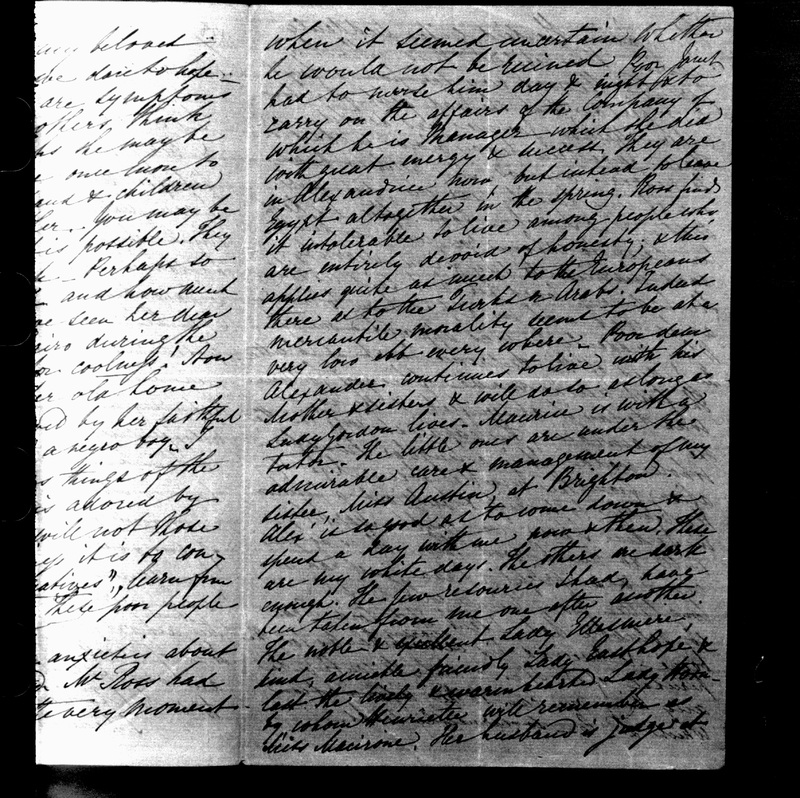 my beloved
she dare to hope
are symptoms
others think
she may be
once more to
and & children
her. You may be
is possible. They
Perhaps so
and how much
seen her dear
Cairo during the
for coolness! Now
her old home
by her faithful
a negro boy. I
things of the
is adored by
will not those
it is to con-
natives", learn from
These poor people
anxieties about
Mr Ross had
the very moment
when it seemed uncertain whether
he would not be ruined. Poor Janet
had to nurse him day & night & to
carry on the affairs of the Company of
which he is Manager – which she did
with great energy & success. They are
in Alexandria now, but intend to leave
Egypt altogether in the spring. Ross finds
it intolerable to live among people who
are entirely devoid of honesty; & this
applies quite as much to the Europeans
there as to the Turks or Arabs. Indeed
mercantile morality seems to be at a
very low ebb every where. Poor dear
Alexander continues to live with his
Mother & sisters & will do so as long as
Lady Gordon lives – Maurice is with a
tutor. The little ones are under the
admirable care & management of my
sister, Miss Austin, at Brighton.
Alex is so good as to come down &
spend a day with me now & then. These
are my white days. The others are dark
enough. The few resources I had, have
been taken from me one after another.
The noble & excellent Lady Ellesmere,
kind, amiable, friendly Lady Easthope &
last the lively & warmhearted Lady
whom Henriette will remember as
Miss Macirone. Her husband is judge at